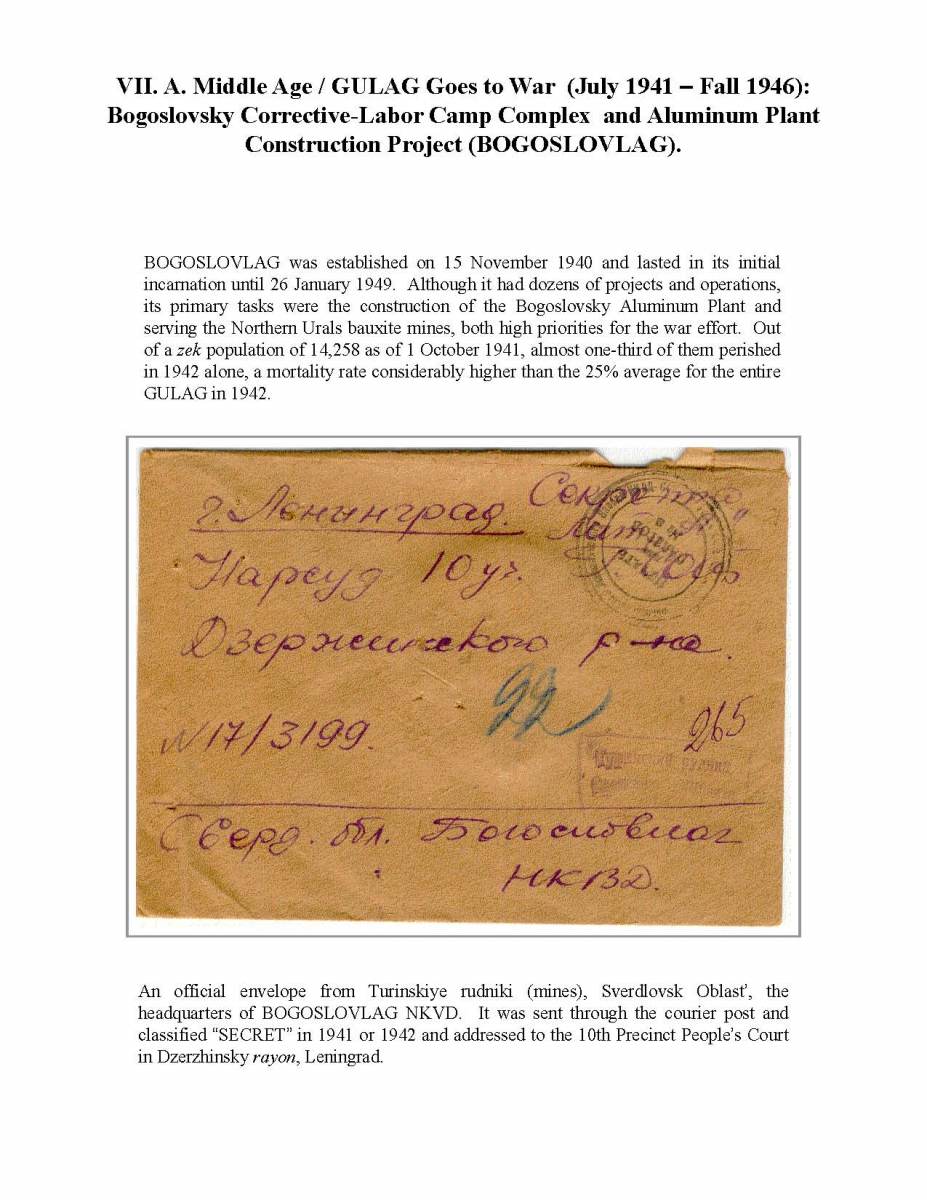 VII. A. Middle Age / GULAG Goes to War (July 1941 – Fall 1946):
Bogoslovsky Corrective-Labor Camp Complex and Aluminum Plant
Construction Project (BOGOSLOVLAG).
BOGOSLOVLAG was established on 15 November 1940 and lasted in its initial
incarnation until 26 January 1949. Although it had dozens of projects and operations,
its primary tasks were the construction of the Bogoslovsky Aluminum Plant and
serving the Northern Urals bauxite mines, both high priorities for the war effort. Out
of a zek population of 14,258 as of 1 October 1941, almost one-third of them perished
in 1942 alone, a mortality rate considerably higher than the 25% average for the entire
GULAG in 1942.
Секретно
г. Ленинград.
Нарсуд 10 уч.
Дзержинского р-на.
22
265
N 17/3199.
Сверд. обл. Богословлаг
НКВД.
An official envelope from Turinskiye rudniki (mines), Sverdlovsk Oblast', the
headquarters of BOGOSLOVLAG NKVD. It was sent through the courier post and
classified “SECRET” in 1941 or 1942 and addressed to the 10th Precinct People's Court
in Dzerzhinsky rayon, Leningrad.